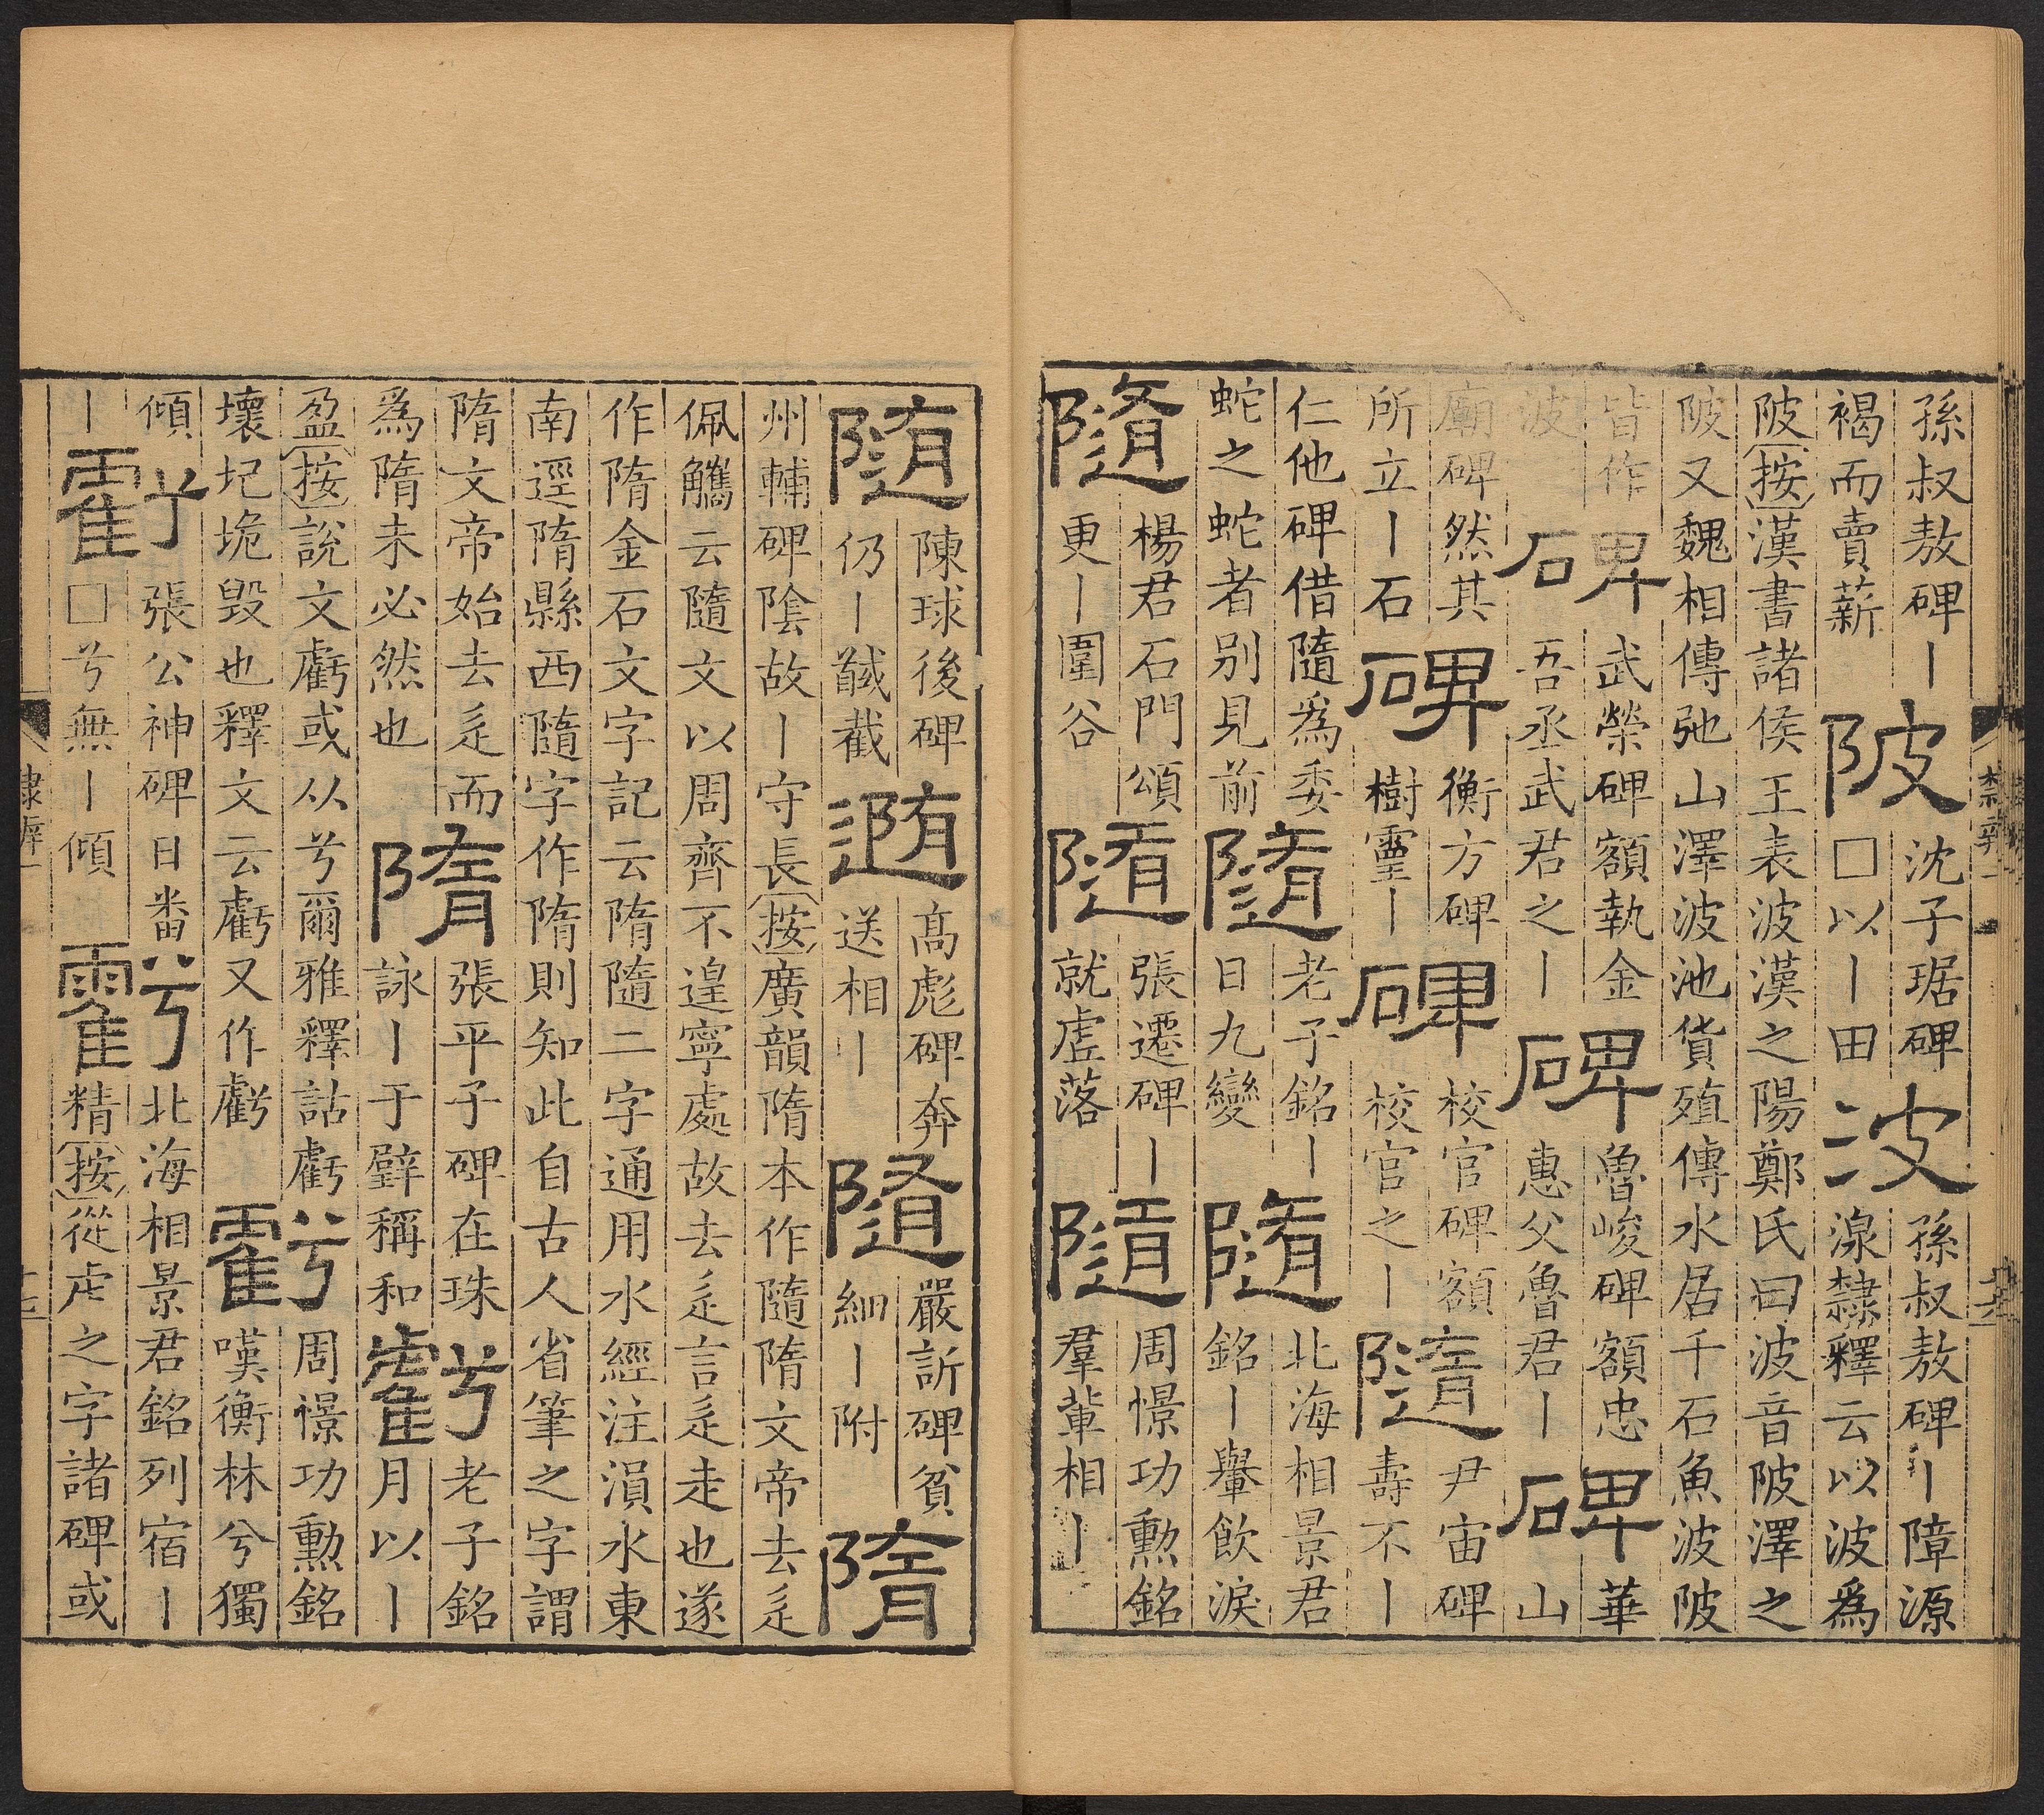 孫叔敖碑丨
褐而賣薪
陂
沈子琚碑
□以丨田
波
孫叔敖碑丨障源
湶隸釋云以波為
陂按漢書諸侯王表波漢之陽鄭氏曰波音陂澤之
陂又魏相傳弛山澤波池貨殖傳水居千石魚波陂
皆作
波
碑
武榮碑額執金
吾丞武君之丨
碑
魯峻碑額忠
惠父魯君丨
碑
華
山
廟碑然其
所立丨石
碑
衡方碑
樹靈丨
碑
校官碑額
校官之丨
隨
尹宙碑
壽不丨
仁他碑借隨為委
蛇之蛇者别見前
隨
老子銘丨
日九變
隨
北海相景君
銘丨轝飲淚
隨
楊君石門頌
更丨圍谷
隨
張遷碑丨
就虛落
隨
周憬功勲銘
羣輩相丨
隨
陳球後碑
仍丨馘截
隨
高彪碑奔
送相丨
隨
嚴訢碑貧
細丨附
隋
州輔碑陰故丨守長按廣韻隋本作隨隋文帝去辵
佩觿云隨文以周齊不遑寧處故去辵言辵走也遂
作隋金石文字記云隋隨二字通用水經注溳水東
南逕隋縣西隨字作隋則知此自古人省筆之字謂
隋文帝始去辵而
為隋未必然也
隋
張平子碑在珠
詠丨于璧稱和
虧
老子銘
月以丨
盈按說文虧或从兮爾雅釋詁虧
壞圮垝毀也釋文云虧又作虧
虧
周憬功勲銘
嘆衡林兮獨
傾
丨
虧
張公神碑日番
□兮無丨傾
虧
北海相景君銘列宿丨
精按從虍之字諸碑或
隸辨一